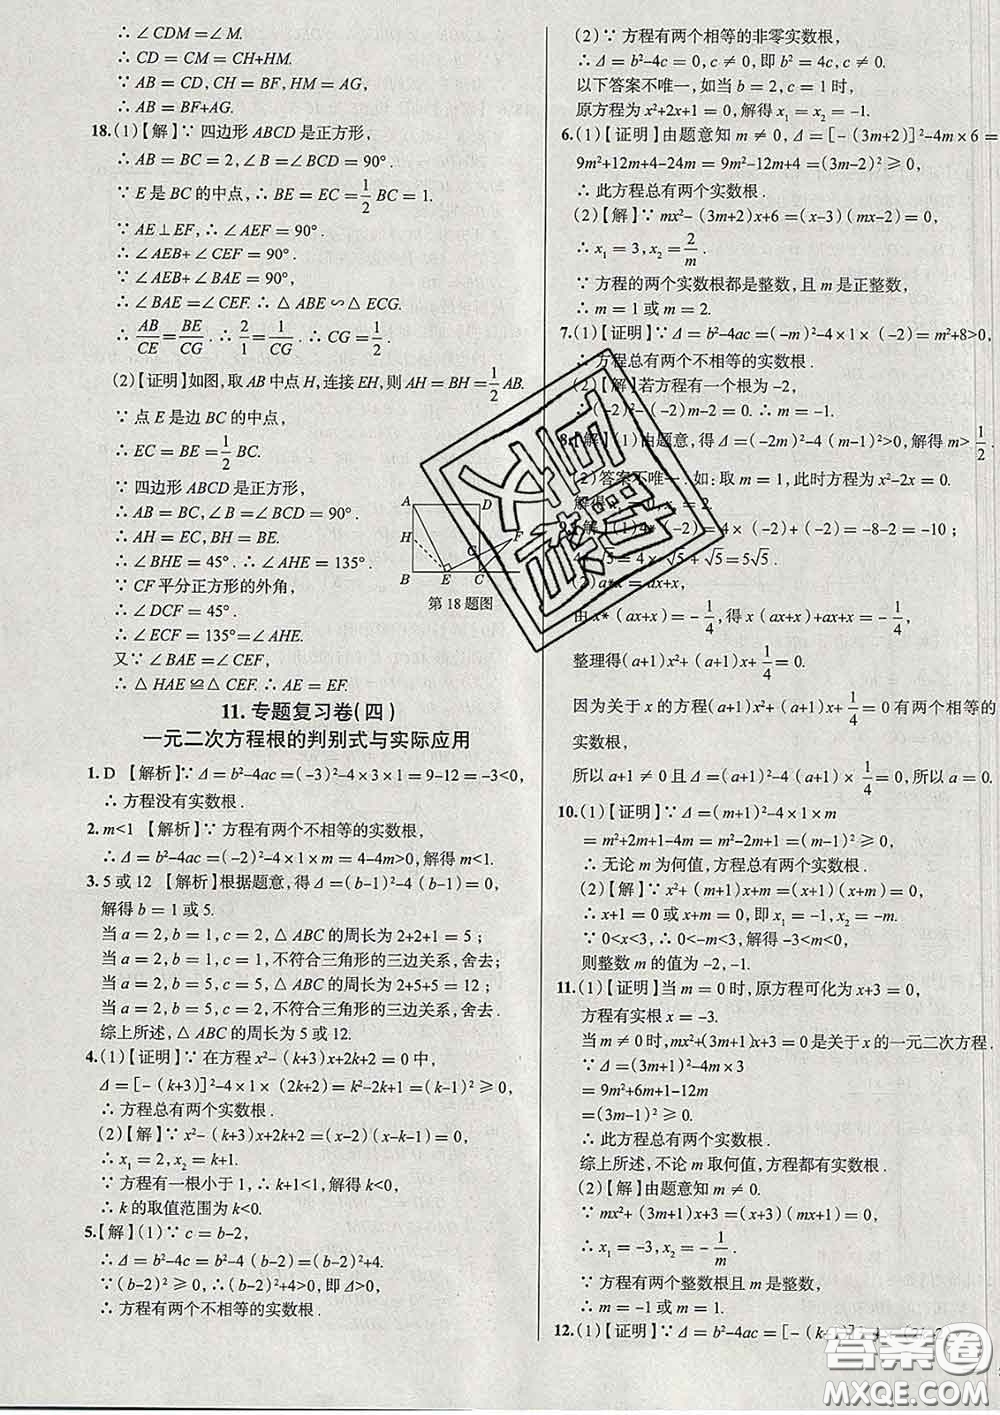 ∴ ∠CDM=∠M.
∴ CD = CM = CH+HM.
∵ AB = CD, CH = BF, HM = AG,
∴ AB = BF+AG.
18.(1)【解】∵ 四边形 ABCD 是正方形,
∴ AB = BC = 2, ∠B =∠BCD = 90°.
∵ E 是 BC 的中点, ∴ BE = EC = 1/2 BC = 1.
∵ AE⊥EF, ∴ ∠AEF = 90°.
∴ ∠AEB+∠CEF = 90°.
∵ ∠AEB+∠BAE = 90°,
∴ ∠BAE =∠CEF. ∴ △ABE ∽ △ECG.
∴ AB/CE = BE/CG. ∴ 2/1 = 1/CG. ∴ CG = 1/2.
(2)【证明】如图, 取 AB 中点 H, 连接 EH, 则 AH = BH = 1/2 AB.
∵ 点 E 是边 BC 的中点,
∴ EC = BE = 1/2 BC.
∵ 四边形 ABCD 是正方形,
∴ AH = EC, BH = BE.
∴ ∠BHE = 45°. ∴ ∠AHE = 135°.
∵ CF 平分正方形的外角,
∴ ∠DCF = 45°.
∴ ∠ECF = 135°=∠AHE.
又∵ ∠BAE =∠CEF,
∴ △HAE ≌ △CEF. ∴ AE = EF.
A
D
H
G
F
B
E
C
第 18 题图
11. 专题复习卷(四)
一元二次方程根的判别式与实际应用
1. D 【解析】∵ Δ = b²-4ac = (-3)²-4 × 3 × 1 = 9-12 = -3<0,
∴ 方程没有实数根.
2. m<1 【解析】∵ 方程有两个不相等的实数根,
∴ Δ = b²-4ac = (-2)²-4 × 1 × m = 4-4m>0, 解得 m<1.
3. 5 或 12 【解析】根据题意, 得 Δ = (b-1)²-4 (b-1) = 0,
解得 b = 1 或 5.
当 a = 2, b = 1, c = 2, △ABC 的周长为 2+2+1 = 5 ;
当 a = 2, b = 1, c = 1, 不符合三角形的三边关系, 舍去;
当 a = 2, b = 5, c = 5, △ABC 的周长为 2+5+5 = 12 ;
当 a = 2, b = 5, c = 2, 不符合三角形的三边关系, 舍去;
综上所述, △ABC 的周长为 5 或 12.
4.(1)【证明】∵ 在方程 x²- (k+3)x+2k+2 = 0 中,
Δ = [- (k+3)]²-4 × 1 × (2k+2) = k²-2k+1 = (k-1)² ≥ 0,
∴ 方程总有两个实数根.
(2)【解】∵ x²- (k+3)x+2k+2 = (x-2)(x-k-1) = 0,
∴ x₁ = 2, x₂ = k+1.
∵ 方程有一根小于 1, ∴ k+1<1, 解得 k<0.
∴ k 的取值范围为 k<0.
5.【解】(1)∵ c = b-2,
∴ Δ = b²-4c = b²-4 (b-2) = (b-2)²+4.
∵ (b-2)² ≥ 0, ∴ (b-2)²+4>0, 即 Δ>0.
∴ 方程有两个不相等的实数根.
(2)∵ 方程有两个相等的非零实数根,
∴ Δ = b²-4c = 0, c ≠ 0, 即 b² = 4c, c ≠ 0.
以下答案不唯一, 如当 b = 2, c = 1 时,
原方程为 x²+2x+1 = 0, 解得 x₁ = x₂ = -1.
6.(1)【证明】由题意知 m ≠ 0, Δ = [- (3m+2)]²-4m × 6 =
9m²+12m+4-24m = 9m²-12m+4 = (3m-2)² ≥ 0,
∴ 此方程总有两个实数根.
(2)【解】∵ mx²- (3m+2)x+6 = (x-3)(mx-2) = 0,
∴ x₁ = 3, x₂ = 2/m.
∵ 方程的两个实数根都是整数, 且 m 是正整数,
∴ m = 1 或 m = 2.
7.(1)【证明】∵ Δ = b²-4ac = (-m)²-4 × 1 × (-2) = m²+8>0,
∴ 方程总有两个不相等的实数根.
(2)【解】若方程有一个根为 -2,
∴ (-2)²- (-2)m-2 = 0. ∴ m = -1.
8.【解】(1)由题意, 得 Δ = (-2m)²-4 (m-1)²>0, 解得 m>1/2.
(2)答案不唯一. 如: 取 m = 1, 此时方程为 x²-2x = 0.
解得 x₁ = 0, x₂ = 2.
9.【解】(1)4* (-2) = 4 × (-2) + (-2) = -8-2 = -10 ;
4*√5 = 4 × √5 + √5 = 5√5.
(2)a*x = ax+x,
由 x* (ax+x) = -1/4, 得 x (ax+x) + (ax+x) = -1/4,
整理得 (a+1)x²+ (a+1)x+1/4 = 0.
因为关于 x 的方程 (a+1)x²+ (a+1)x+1/4 = 0 有两个相等的
实数根,
所以 a+1 ≠ 0 且 Δ = (a+1)²-4 (a+1) × 1/4 = 0, 所以 a = 0.
10.(1)【证明】∵ Δ = (m+1)²-4 × 1 × m
= m²+2m+1-4m = m²-2m+1 = (m-1)² ≥ 0,
∴ 无论 m 为何值, 方程总有两个实数根.
(2)【解】∵ x²+ (m+1)x+m = (x+1)(x+m) = 0.
∴ x+1 = 0 或 x+m = 0, 即 x₁ = -1, x₂ = -m.
∵ 0<x<3, ∴ 0<-m<3, 解得 -3<m<0,
则整数 m 的值为 -2, -1.
11.(1)【证明】当 m = 0 时, 原方程可化为 x+3 = 0,
方程有实根 x = -3.
当 m ≠ 0 时, mx²+(3m+1)x+3 = 0 是关于 x 的一元二次方程.
∵ Δ = (3m+1)²-4m × 3
= 9m²+6m+1-12m
= (3m-1)² ≥ 0,
∴ 此方程总有两个实数根.
综上所述, 不论 m 取何值, 方程都有实数根.
(2)【解】由题意知 m ≠ 0.
∵ mx²+ (3m+1)x+3 = (x+3)(mx+1) = 0,
∴ x₁ = -3, x₂ = -1/m.
∵ 方程有两个整数根且 m 是整数,
∴ m = -1 或 m = 1.
12.(1)【证明】∵ Δ = b²-4ac = [- (k-
答案圈
MXQE.COM